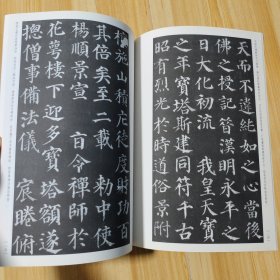 天而不違純如之心當後
佛之授記昔漢明永平之
日大化初流 我皇天寶
之年寶塔斯建同符千古
昭有烈光於時道俗景附
檀施山積庀徒度財功百
其倍矣至二載 勅中使
楊順景宣 旨令禪師於
花萼樓下迎多寶塔額遂
揔僧事備法儀 宸睠俯